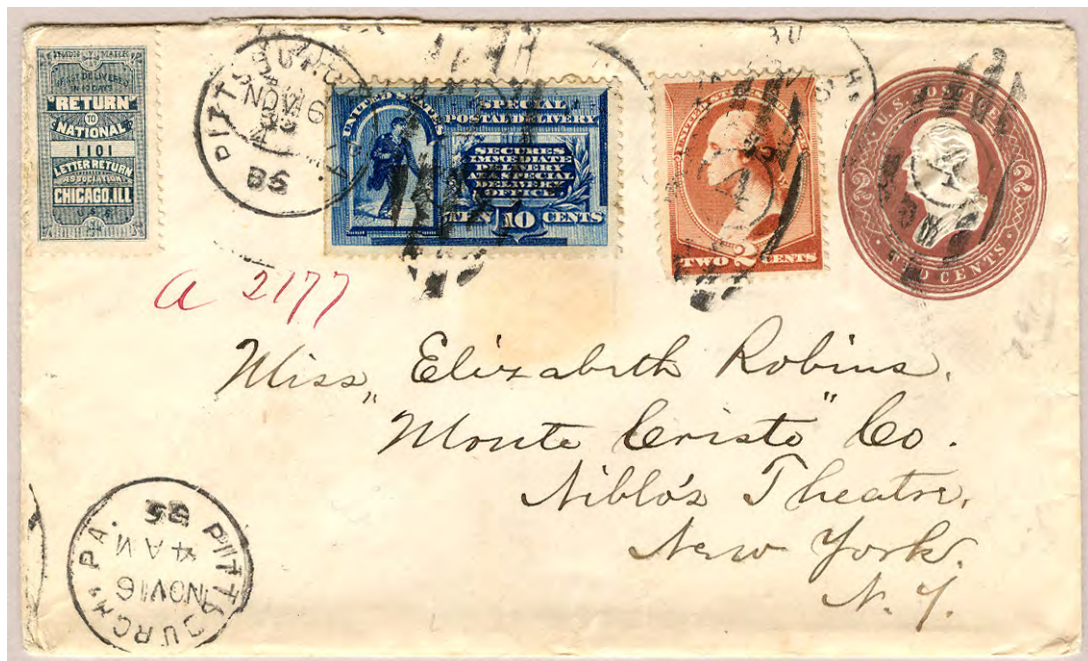 IF NOT DELIVERED
IN 10 DAYS
"RETURN"
TO
NATIONAL
1101
LETTER RETURN
ASSOCIATION
CHICAGO, ILL.
U.S.
PITTSBURGH
NOV 16
4
85
UNITED STATES
SPECIAL
POSTAL DELIVERY
SECURES
IMMEDIATE
DELIVERY
AT A SPECIAL
DELIVERY
OFFICE
TEN 10 CENTS
UNITED STATES
TWO 2 CENTS
U.S. POSTAGE
2 2
TWO CENTS
a 2177
Miss, Elizabeth Robins,
"Monte Cristo" Co.
Niblo's Theatre,
New York.
N.Y.
PITTSBURGH, PA.
NOV 16
4 AM
85